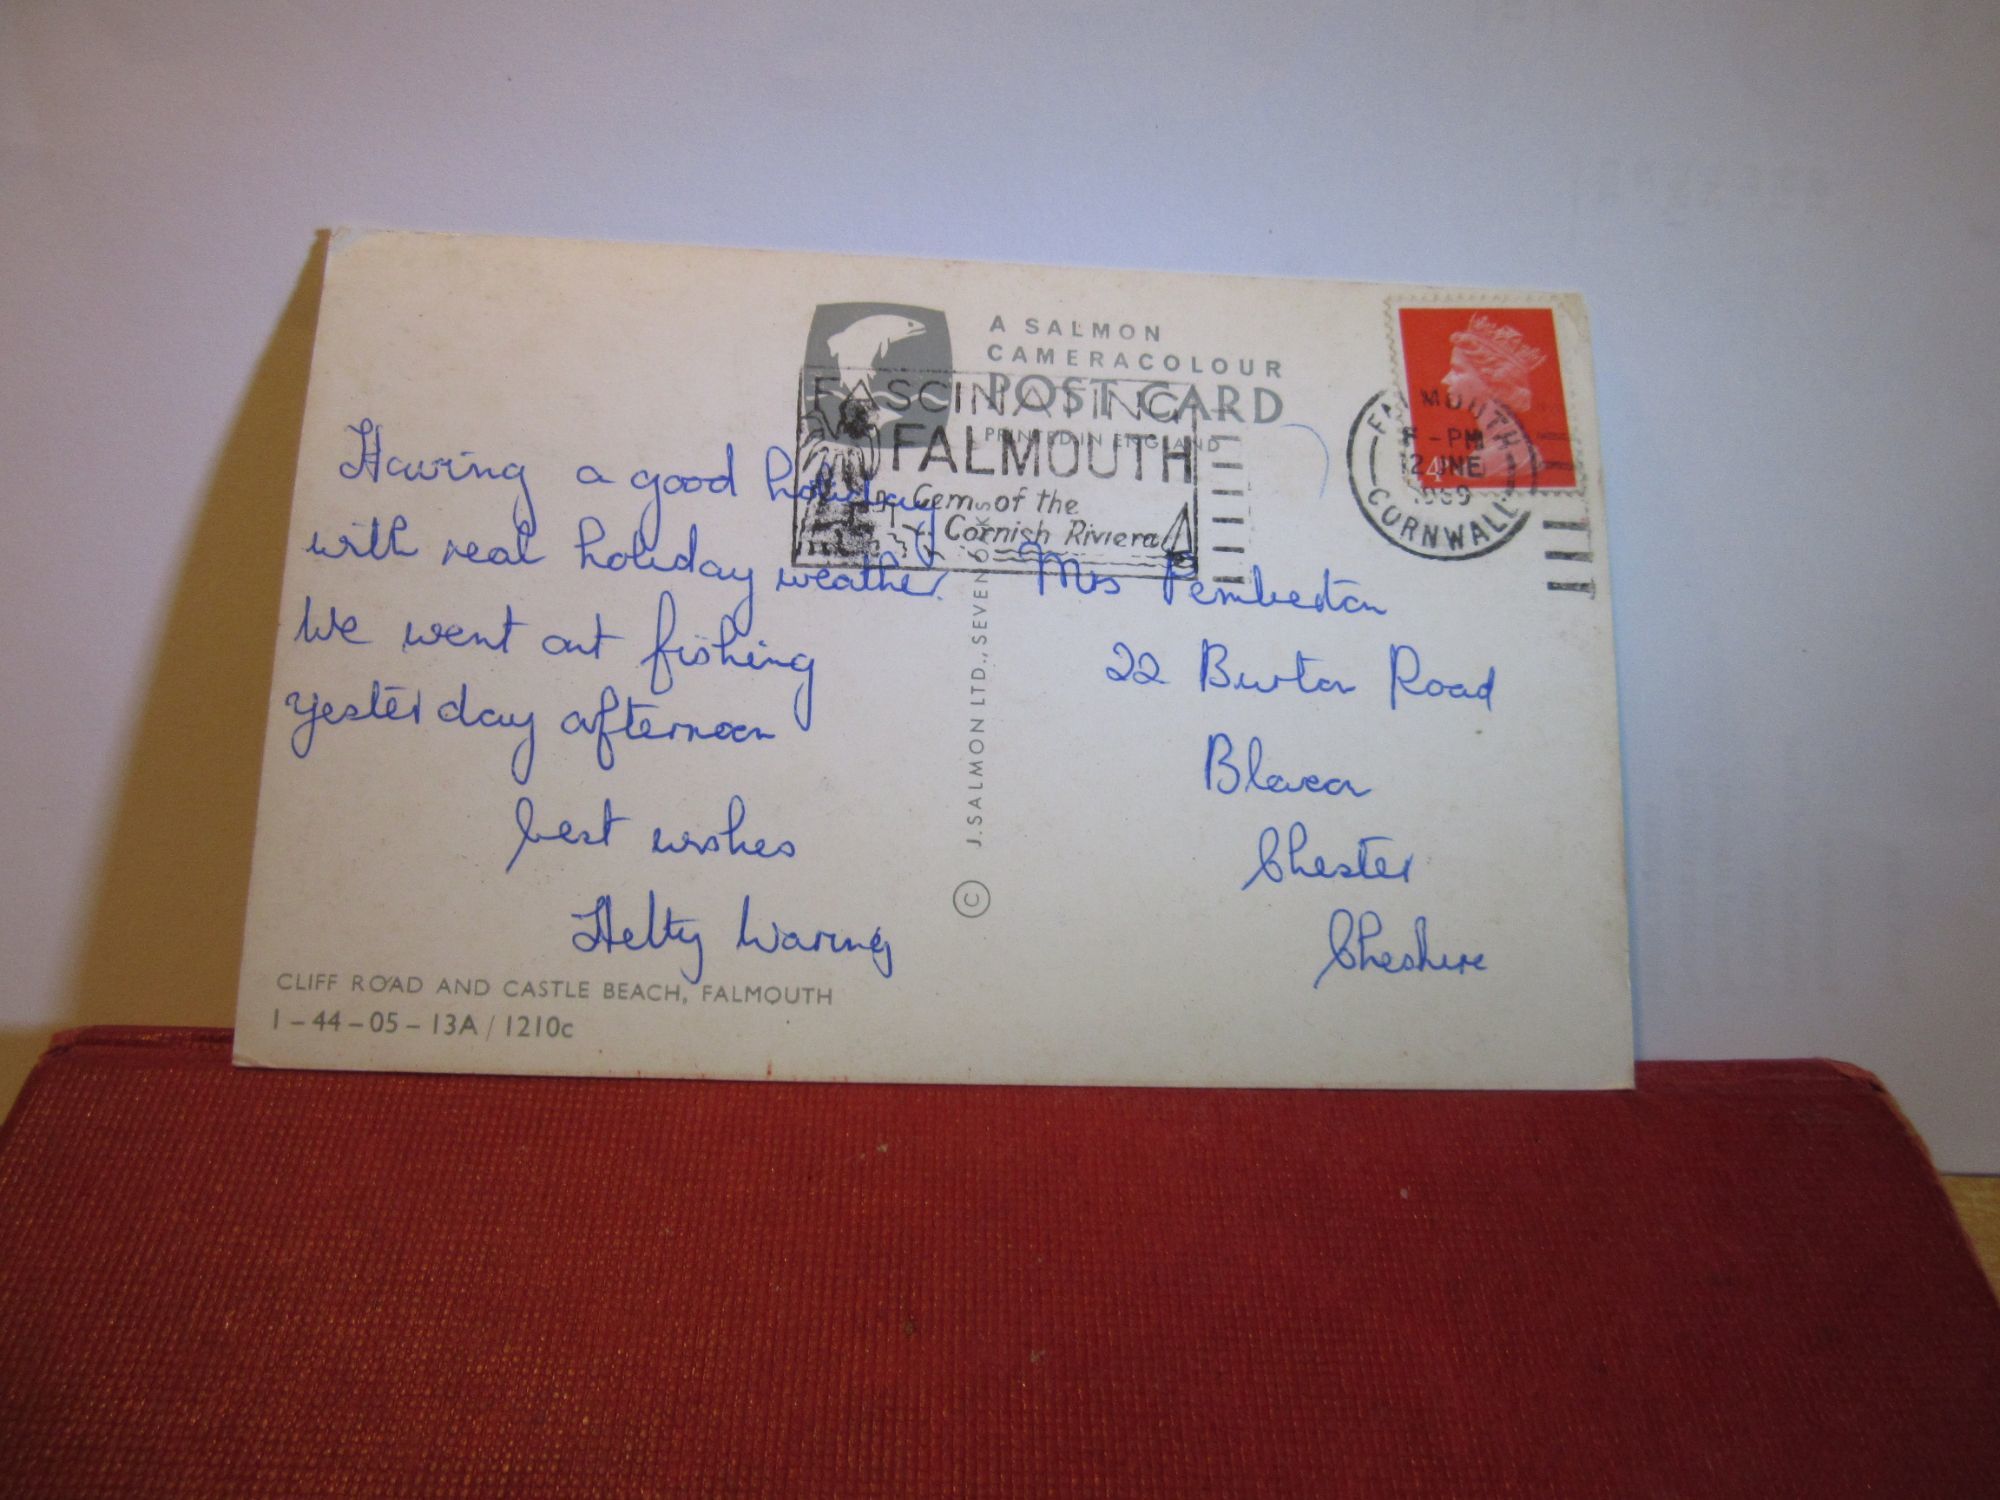 A SALMON
CAMERACOLOUR
POST CARD
PRINTED IN ENGLAND
FASCINATING
FALMOUTH
Gem of the
Cornish Riviera
FALMOUTH
- PM
12 JNE
1969
CORNWALL
4
Having a good holiday
with real holiday weather.
We went out fishing
yesterday afternoon
best wishes
Hetty Waring
CLIFF ROAD AND CASTLE BEACH, FALMOUTH
1-44-05-13A / 1210c
© J. SALMON LTD., SEVENOAKS
Mrs Pemberton
22 Burton Road
Blacon
Chester
Cheshire